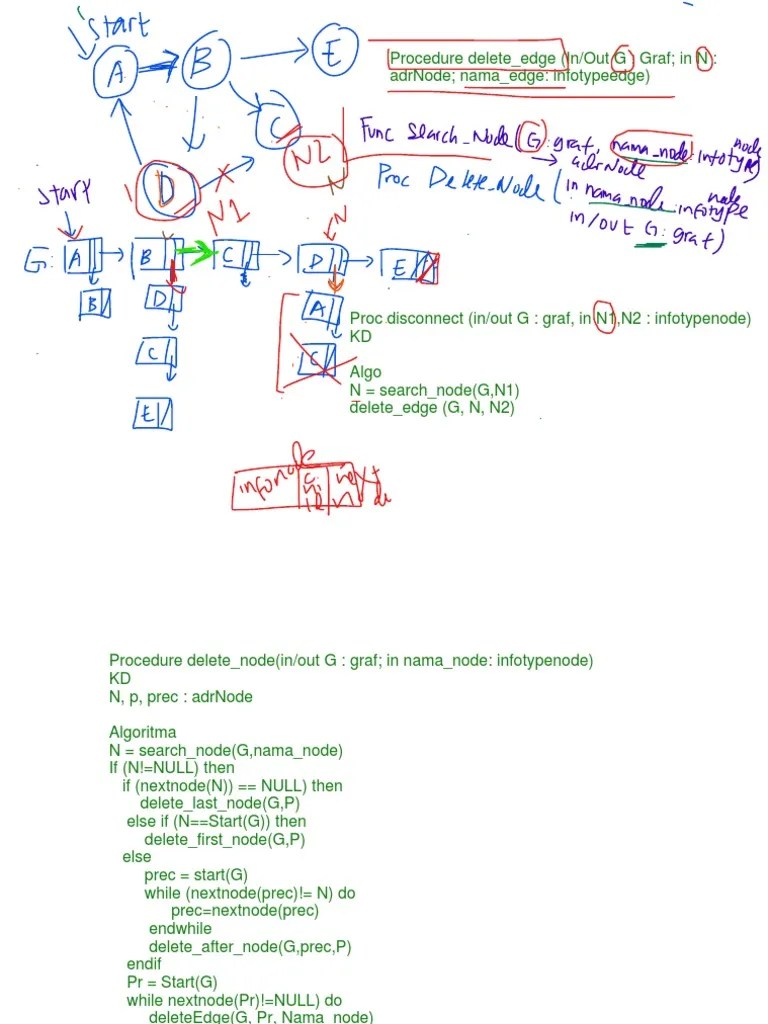 Start
A
B
E
C
D
N2
N1
Procedure delete_edge (In/Out G : Graf; in N :
adrNode; nama_edge: infotypeedge)
Func Search_Node (G: graf, nama_node: infotype node)
→ adrNode
Proc Delete_Node (in nama_node: infotype node
in/out G: graf)
Start
N
G: A B C D E
B
D
C
E
A
C
Proc disconnect (in/out G : graf, in N1,N2 : infotypenode)
KD
Algo
N = search_node(G,N1)
delete_edge (G, N, N2)
infonode
Procedure delete_node(in/out G : graf; in nama_node: infotypenode)
KD
N, p, prec : adrNode
Algoritma
N = search_node(G,nama_node)
If (N!=NULL) then
if (nextnode(N)) == NULL) then
delete_last_node(G,P)
else if (N==Start(G)) then
delete_first_node(G,P)
else
prec = start(G)
while (nextnode(prec)!= N) do
prec=nextnode(prec)
endwhile
delete_after_node(G,prec,P)
endif
Pr = Start(G)
while nextnode(Pr)!=NULL) do
deleteEdge(G, Pr, Nama_node)